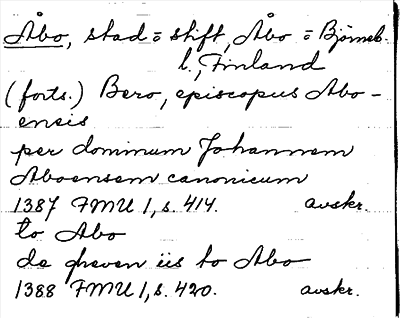 Åbo, stad = stift, Åbo = Björneb.
l., Finland
(forts.) Bero, episcopus Abo-
ensis
per dominum Johannem
Aboensem canonicum
1387 FMU 1, s. 414. avskr.
to Abo
de greven iis to Abo
1388 FMU 1, s. 420. avskr.